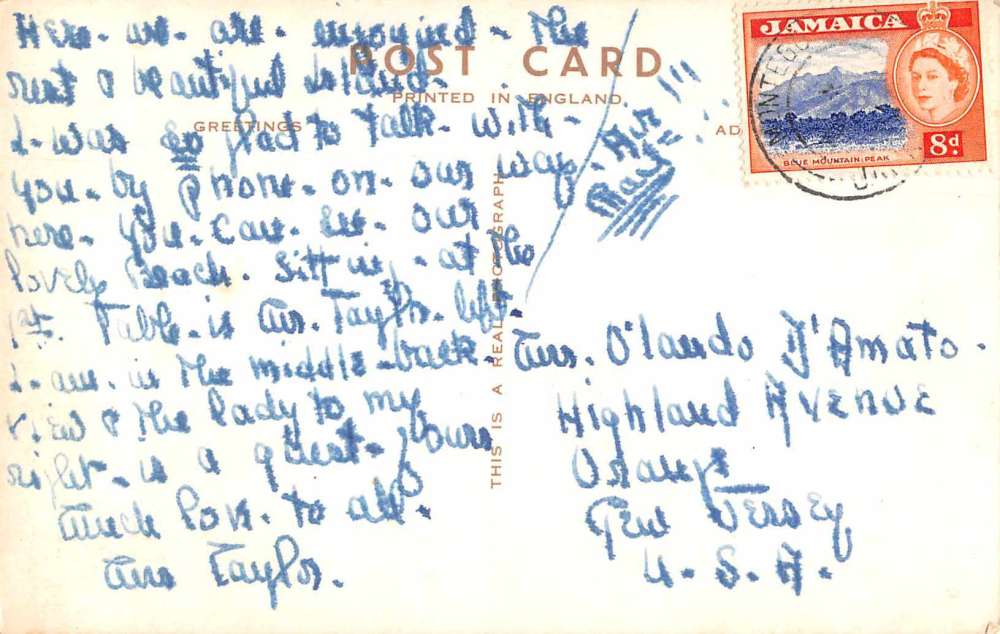 POST CARD
PRINTED IN ENGLAND
GREETINGS
AD
THIS IS A REAL PHOTOGRAPH
JAMAICA
8d
BLUE MOUNTAIN PEAK
MONTEGO
Here - we - are - enjoying - the
rest & beautiful Island -
I - was so glad to talk - with -
you - by phone - on - our way
here - you - can - see - our
lovely Beach. Sitting - at the
1st. Table - is Mr. Taylor - left -
I - am - in the middle - back -
view & the lady to my
right - is a guest - yours
Much love - to all -
Mrs Taylor.
Air
Mail
Mrs. O'lando D'Amato.
Highland Avenue
Orange
New Jersey
U. S. A.